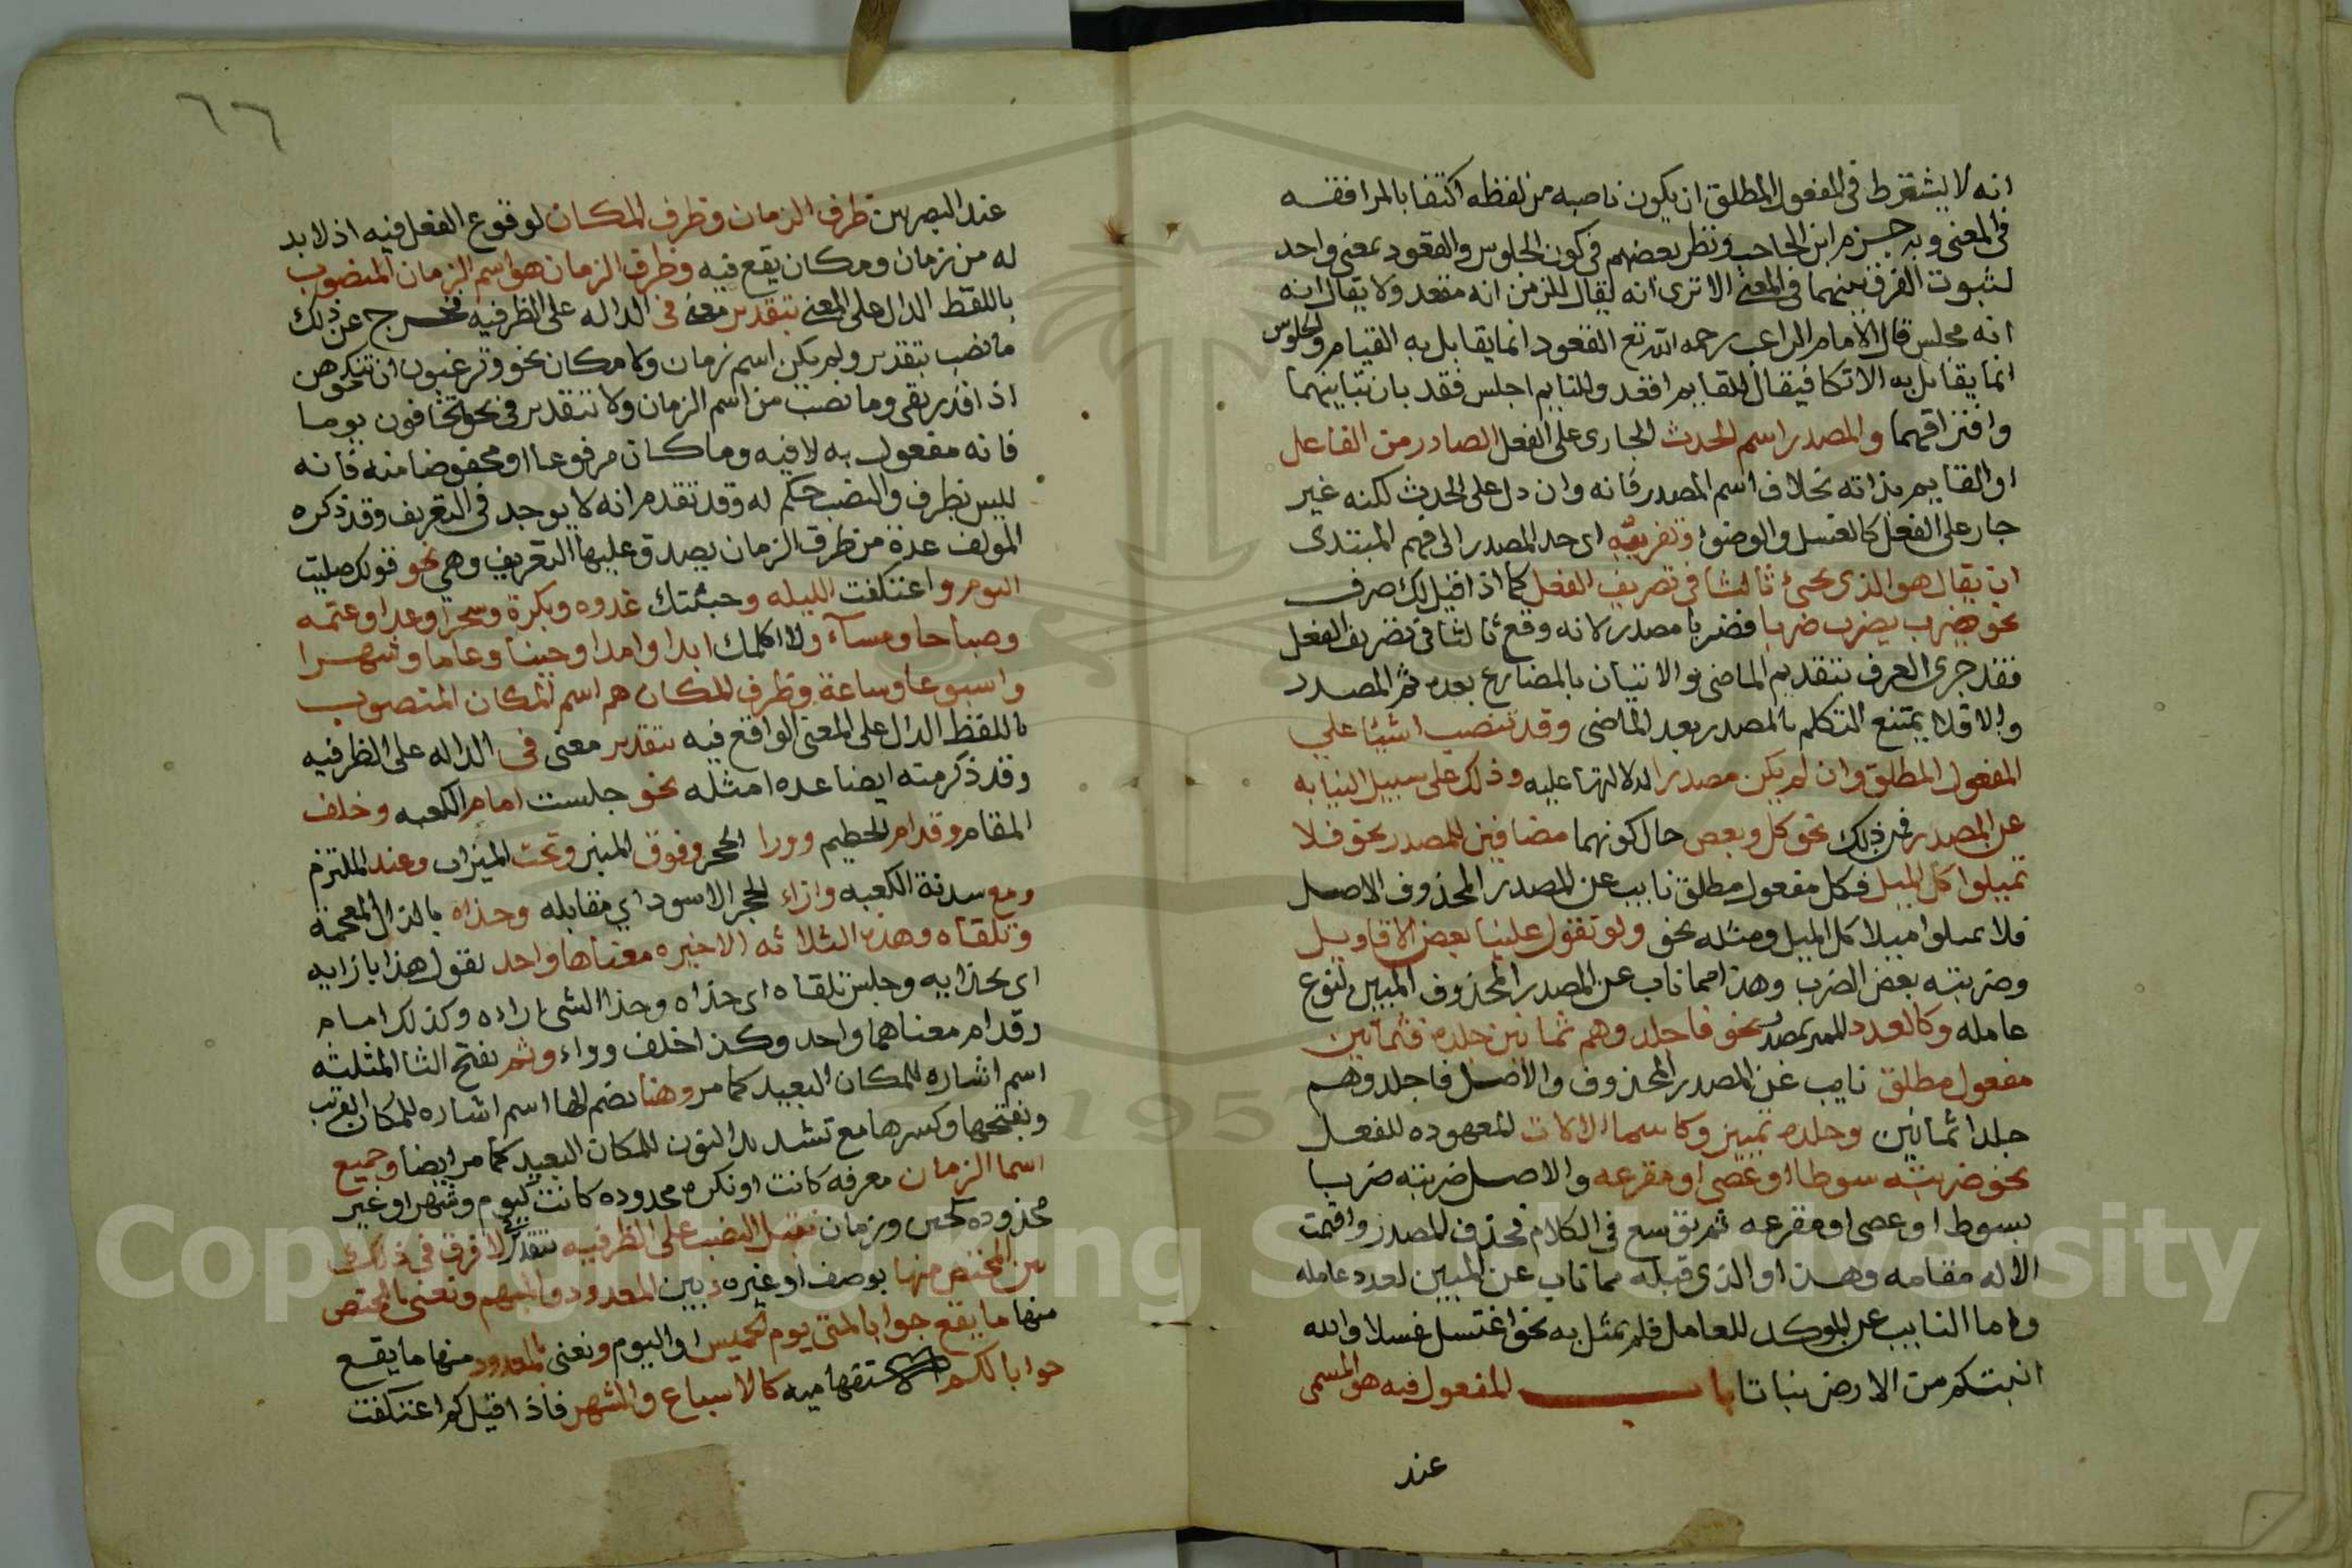 انه لا يشترط فى المفعول المطلق ان يكون ناصبه من لفظه اكتفا بالموافقه
فى المعنى وبه جزم ابن الحاجب ونظر بعضهم فى كون الجلوس والقعود بمعنى واحد
لثبوت الفرق بينهما فى المعنى الا ترى انه يقال للزمن انه مقعد ولا يقال انه
انه مجلس قال الامام الراعى رحمه الله تع القعود انما يقابل به القيام والجلوس
انما يقابل به الاتكا فيقال للقايم اقعد وللنايم اجلس فقد بان تباينهما
وافتراقهما والمصدر اسم الحدث الجارى على الفعل الصادر من الفاعل
او القايم بذاته بخلاف اسم المصدر فانه وان دل على الحدث لكنه غير
جار على الفعل كالغسل والوضوء وتقريبه اى حد المصدر الى فهم المبتدى
ان يقال هو الذى يجئ ثالثا فى تصريف الفعل كما اذا قيل لك صرف
نحو ضرب يضرب ضربا فضربا مصدر لانه وقع ثالثا فى تصريف الفعل
فقد جرى العرف بتقديم الماضى والاتيان بالمضارع بعده ثم المصدر
والا فلا يمتنع التكلم بالمصدر بعد الماضى وقد تنصب اشيئا على
المفعول المطلق وان لم يكن مصدرا لدلالتها عليه وذلك على سبيل النيابه
عن المصدر فمن ذلك نحو كل وبعض حال كونهما مضافين للمصدر نحو فلا
تميلوا كل الميل فكل مفعول مطلق نايب عن المصدر المحذوف الاصل
فلا تميلوا ميلا كل الميل ومثله نحو ولو تقول علينا بعض الاقاويل
وضربته بعض الضرب وهذا مما ناب عن المصدر المحذوف المبين لنوع
عامله وكالعدد المميز بمصدر نحو فاجلدوهم ثمانين جلده فثمانين
مفعول مطلق نايب عن المصدر المحذوف والاصل فاجلدوهم
جلدا ثمانين وجلده تمييز وكاسما الالات المعهوده للفعل
نحو ضربته سوطا او عصى او مقرعه والاصل ضربته ضربا
بسوط او عصى او مقرعه ثم توسع فى الكلام فحذف المصدر واقيمت
الاله مقامه وهذا او الذى قبله مما ناب عن المبين لعدد عامله
واما النايب عن الموكد للعامل فلم يمثل به نحو اغتسل غسلا والله
انبتكم من الارض نباتا باب المفعول فيه هو المسمى
عند
٦٦
عند البصريين ظرف الزمان وظرف المكان لوقوع الفعل فيه اذ لا بد
له من زمان ومكان يقع فيه وظرف الزمان هو اسم الزمان المنصوب
باللفظ الدال على المعنى بتقدير معنى فى الداله على الظرفيه فخرج عن ذلك
ما نصب بتقدير ولم يكن اسم زمان ولا مكان نحو وترغبون ان تنكحوهن
اذا قدر بفى وما نصب من اسم الزمان ولا بتقدير فى نحو يخافون يوما
فانه مفعول به لا فيه وما كان مرفوعا او مخفوضا منه فانه
ليس بظرف والنصب حكم له وقد تقدم انه لا يوجد فى التعريف وقد ذكره
المولف عدة من ظرف الزمان يصدق عليها التعريف وهى نحو قولك صليت
اليوم واعتكفت الليله وجئتك غدوه وبكرة وسحرا وغدا وعتمه
وصباحا ومساء ولا اكلمك ابدا وامدا وحينا وعاما وشهرا
واسبوعا وساعة وظرف المكان هم اسم المكان المنصوب
باللفظ الدال على المعنى الواقع فيه بتقدير معنى فى الداله على الظرفيه
وقد ذكر منه ايضا عده امثله نحو جلست امام الكعبه وخلف
المقام وقدام الحطيم وورا الحجر وفوق المنبر وتحت الميزاب وعند الملتزم
ومع سدنة الكعبه وازاء الحجر الاسود اي مقابله وحذاه بالذال المعجمة
وتلقاه وهذه الثلاثه الاخيره معناها واحد تقول هذا بازايه
اى بحذايه وجلس تلقاه اى حذاه وحذا الشى ازاءه وكذلك امام
وقدام معناهما واحد وكذا خلف وورا وثم بفتح الثا المثلثه
اسم اشاره للمكان البعيد كما مر وهنا بضم الها اسم اشاره للمكان القريب
وبفتحها وكسرها مع تشديد النون للمكان البعيد كما مر ايضا وجميع
اسما الزمان معرفه كانت او نكره محدوده كانت كيوم وشهر او غير
محدوده كحين وزمان تقبل النصب على الظرفيه بتقدير فى لا فرق فى ذلك
بين المختص منها بوصف او غيره وبين المعدود والمبهم ونعنى بالمختص
منها ما يقع جوابا لمتى يوم الخميس او اليوم ونعنى بالمعدود منها ما يقع
جوابا لكم الاستفهاميه كالاسباع والشهر فاذا قيل كم اعتكفت
Copyright © King Saud University
1957